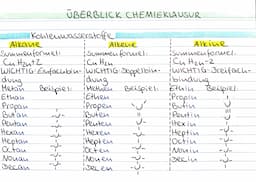 ÜBERBLICK CHEMIEKLAUSUR
Kohlenwasserstoffe
Alkane
Summenformel:
CnH2n+2
WICHTIG: Einfachbin-
dung
Methan Beispiel:
Ethan
Propan
Butan
Pentan
Hexan
Heptan
Octan
Nonan
Decan
Alkene
Summenformel:
CnH2n
WICHTIG: Doppelbin-
dung
Methen Beispiel:
Ethen
Propen
Buten
Penten
Hexen
Hepten
Octen
Nonen
Decen
Alkine
Summenformel:
CnH2n-2
WICHTIG: Dreifach-
bindung
Ethin Beispiel:
Propin
Butin
Pentin
Hexin
Heptin
Octin
Nonin
Decin